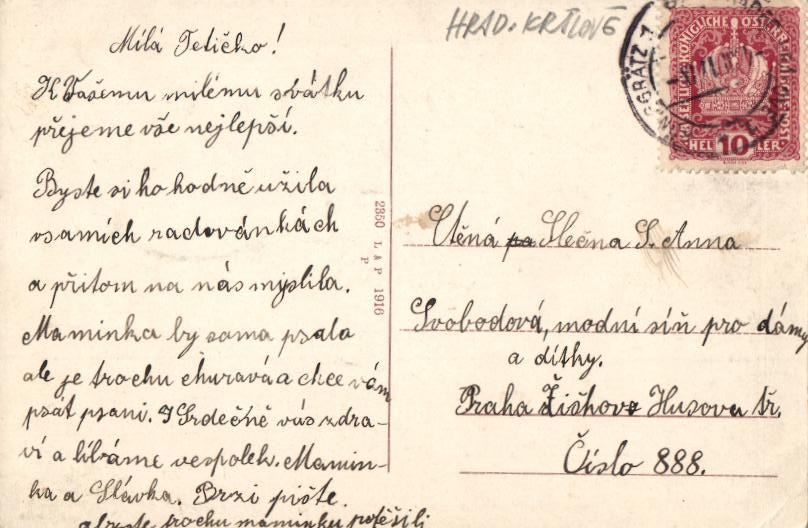 HRAD. KRÁLOVÉ
Milá Tetičko!
K Vašemu milému svátku
přejeme vše nejlepší.
Byste si ho hodně užila
v samích radovánkách
a přitom na nás myslila.
Maminka by sama psala
ale je trochu churavá a chce vám
psát psaní. Srdečně vás zdra-
ví a líbáme vespolek. Mamin-
ka a Slávka. Brzi pište.
abyste trochu maminku potěšili
2350 L & P 1916
P
KÖNIGLICHE ÖSTERR
HELLER
10
Ctěná Slečna S. Anna
Svobodová, modní síň pro dámy
a dítky.
Praha Žižkov Husova tr.
Číslo 888.